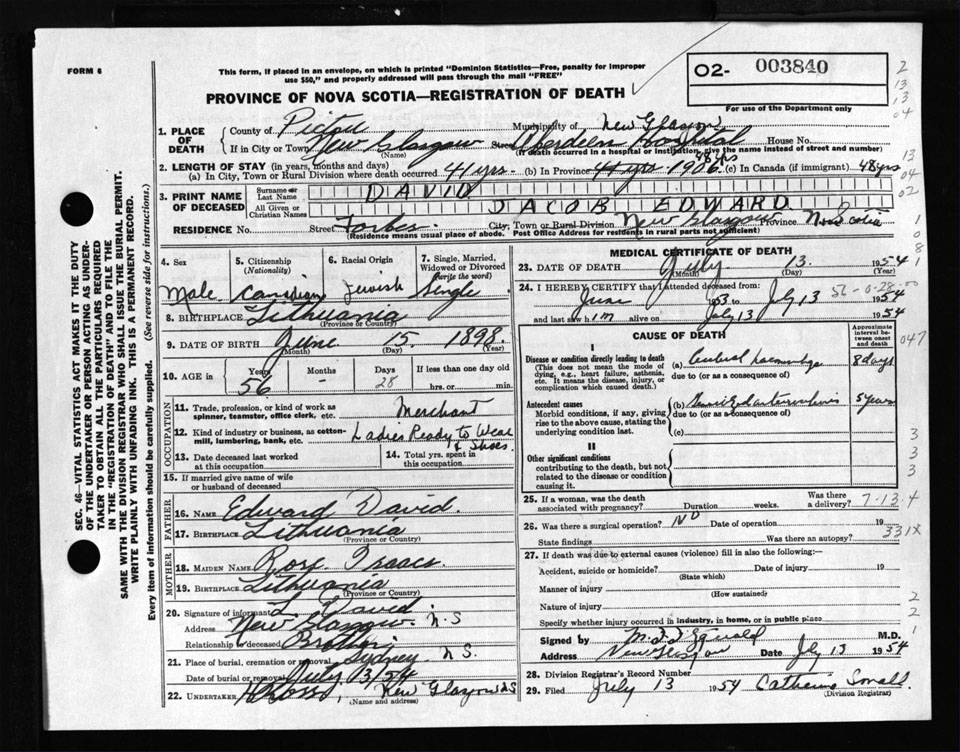 FORM 6
This form, if placed in an envelope, on which is printed "Dominion Statistics—Free, penalty for improper
use $50," and properly addressed will pass through the mail "FREE"
O2- 003840
For use of the Department only
PROVINCE OF NOVA SCOTIA—REGISTRATION OF DEATH
SEC. 46—VITAL STATISTICS ACT MAKES IT THE DUTY
OF THE UNDERTAKER OR PERSON ACTING AS UNDER-
TAKER TO OBTAIN ALL THE PARTICULARS REQUIRED
IN THE "REGISTRATION OF DEATH" AND TO FILE THE
SAME WITH THE DIVISION REGISTRAR WHO SHALL ISSUE THE BURIAL PERMIT.
WRITE PLAINLY WITH UNFADING INK. THIS IS A PERMANENT RECORD.
Every item of information should be carefully supplied. (See reverse side for instructions.)
1. PLACE OF DEATH County of Pictou Municipality of New Glasgow
If in City or Town New Glasgow Street Aberdeen Hospital House No.
(Name) (If death occurred in a hospital or institution, give the name instead of street and number)
2. LENGTH OF STAY (in years, months and days)
(a) In City, Town or Rural Division where death occurred 44 yrs. (b) In Province 44 yrs 1906 48 yrs (c) In Canada (if immigrant) 48 yrs
3. PRINT NAME OF DECEASED Surname or Last Name DAVID
All Given or Christian Names JACOB EDWARD
RESIDENCE No. Street Forbes City, Town or Rural Division New Glasgow Province N. Scotia
(Residence means usual place of abode. Post Office Address for residents in rural parts not sufficient)
4. Sex Male
5. Citizenship (Nationality) Canadian
6. Racial Origin Jewish
7. Single, Married, Widowed or Divorced (write the word) Single
8. BIRTHPLACE Lithuania
(Province or Country)
9. DATE OF BIRTH June 15 1898
(Month) (Day) (Year)
10. AGE in Years 56 Months - Days 28 If less than one day old hrs. or min.
OCCUPATION
11. Trade, profession, or kind of work as spinner, teamster, office clerk, etc. Merchant
12. Kind of industry or business, as cotton-mill, lumbering, bank, etc. Ladies Ready to Wear & Shoes
13. Date deceased last worked at this occupation
14. Total yrs. spent in this occupation
15. If married give name of wife or husband of deceased
FATHER
16. NAME Edward David
17. BIRTHPLACE Lithuania
(Province or Country)
MOTHER
18. MAIDEN NAME Rose Isaacs
19. BIRTHPLACE Lithuania
(Province or Country)
20. Signature of informant David
Address New Glasgow N.S
Relationship to deceased Brother
21. Place of burial, cremation or removal Sydney N S.
Date of burial or removal July 13/54
22. UNDERTAKER H Ross, New Glasgow NS
(Name and address)
MEDICAL CERTIFICATE OF DEATH
23. DATE OF DEATH July 13 1954
(Month) (Day) (Year)
24. I HEREBY CERTIFY that I attended deceased from:
June 1953 to July 13 1954
56-0-28-00
and last saw him alive on July 13 1954
CAUSE OF DEATH
Approximate interval between onset and death
I
Disease or condition directly leading to death
(This does not mean the mode of dying, e.g., heart failure, asthenia, etc. It means the disease, injury, or complication which caused death.)
(a) Cerebral haemorrhage 8 days
due to (or as a consequence of)
Antecedent causes
Morbid conditions, if any, giving rise to the above cause, stating the underlying condition last.
(b) 5 years
due to (or as a consequence of)
(c)
II
Other significant conditions
contributing to the death, but not related to the disease or condition causing it.
25. If a woman, was the death associated with pregnancy? Duration weeks. Was there a delivery? 7-13-4
26. Was there a surgical operation? No Date of operation 19
State findings Was there an autopsy? 331X
27. If death was due to external causes (violence) fill in also the following:—
Accident, suicide or homicide? Date of injury 19
(State which)
Manner of injury
(How sustained)
Nature of injury
Specify whether injury occurred in industry, in home, or in public place
Signed by M.D.
Address New Glasgow Date July 13 1954
28. Division Registrar's Record Number
29. Filed July 13 1954 Catherine Small
(Division Registrar)
2
13
13
04
13
04
02
1
0
8
1
047
3
3
3
2
2
1